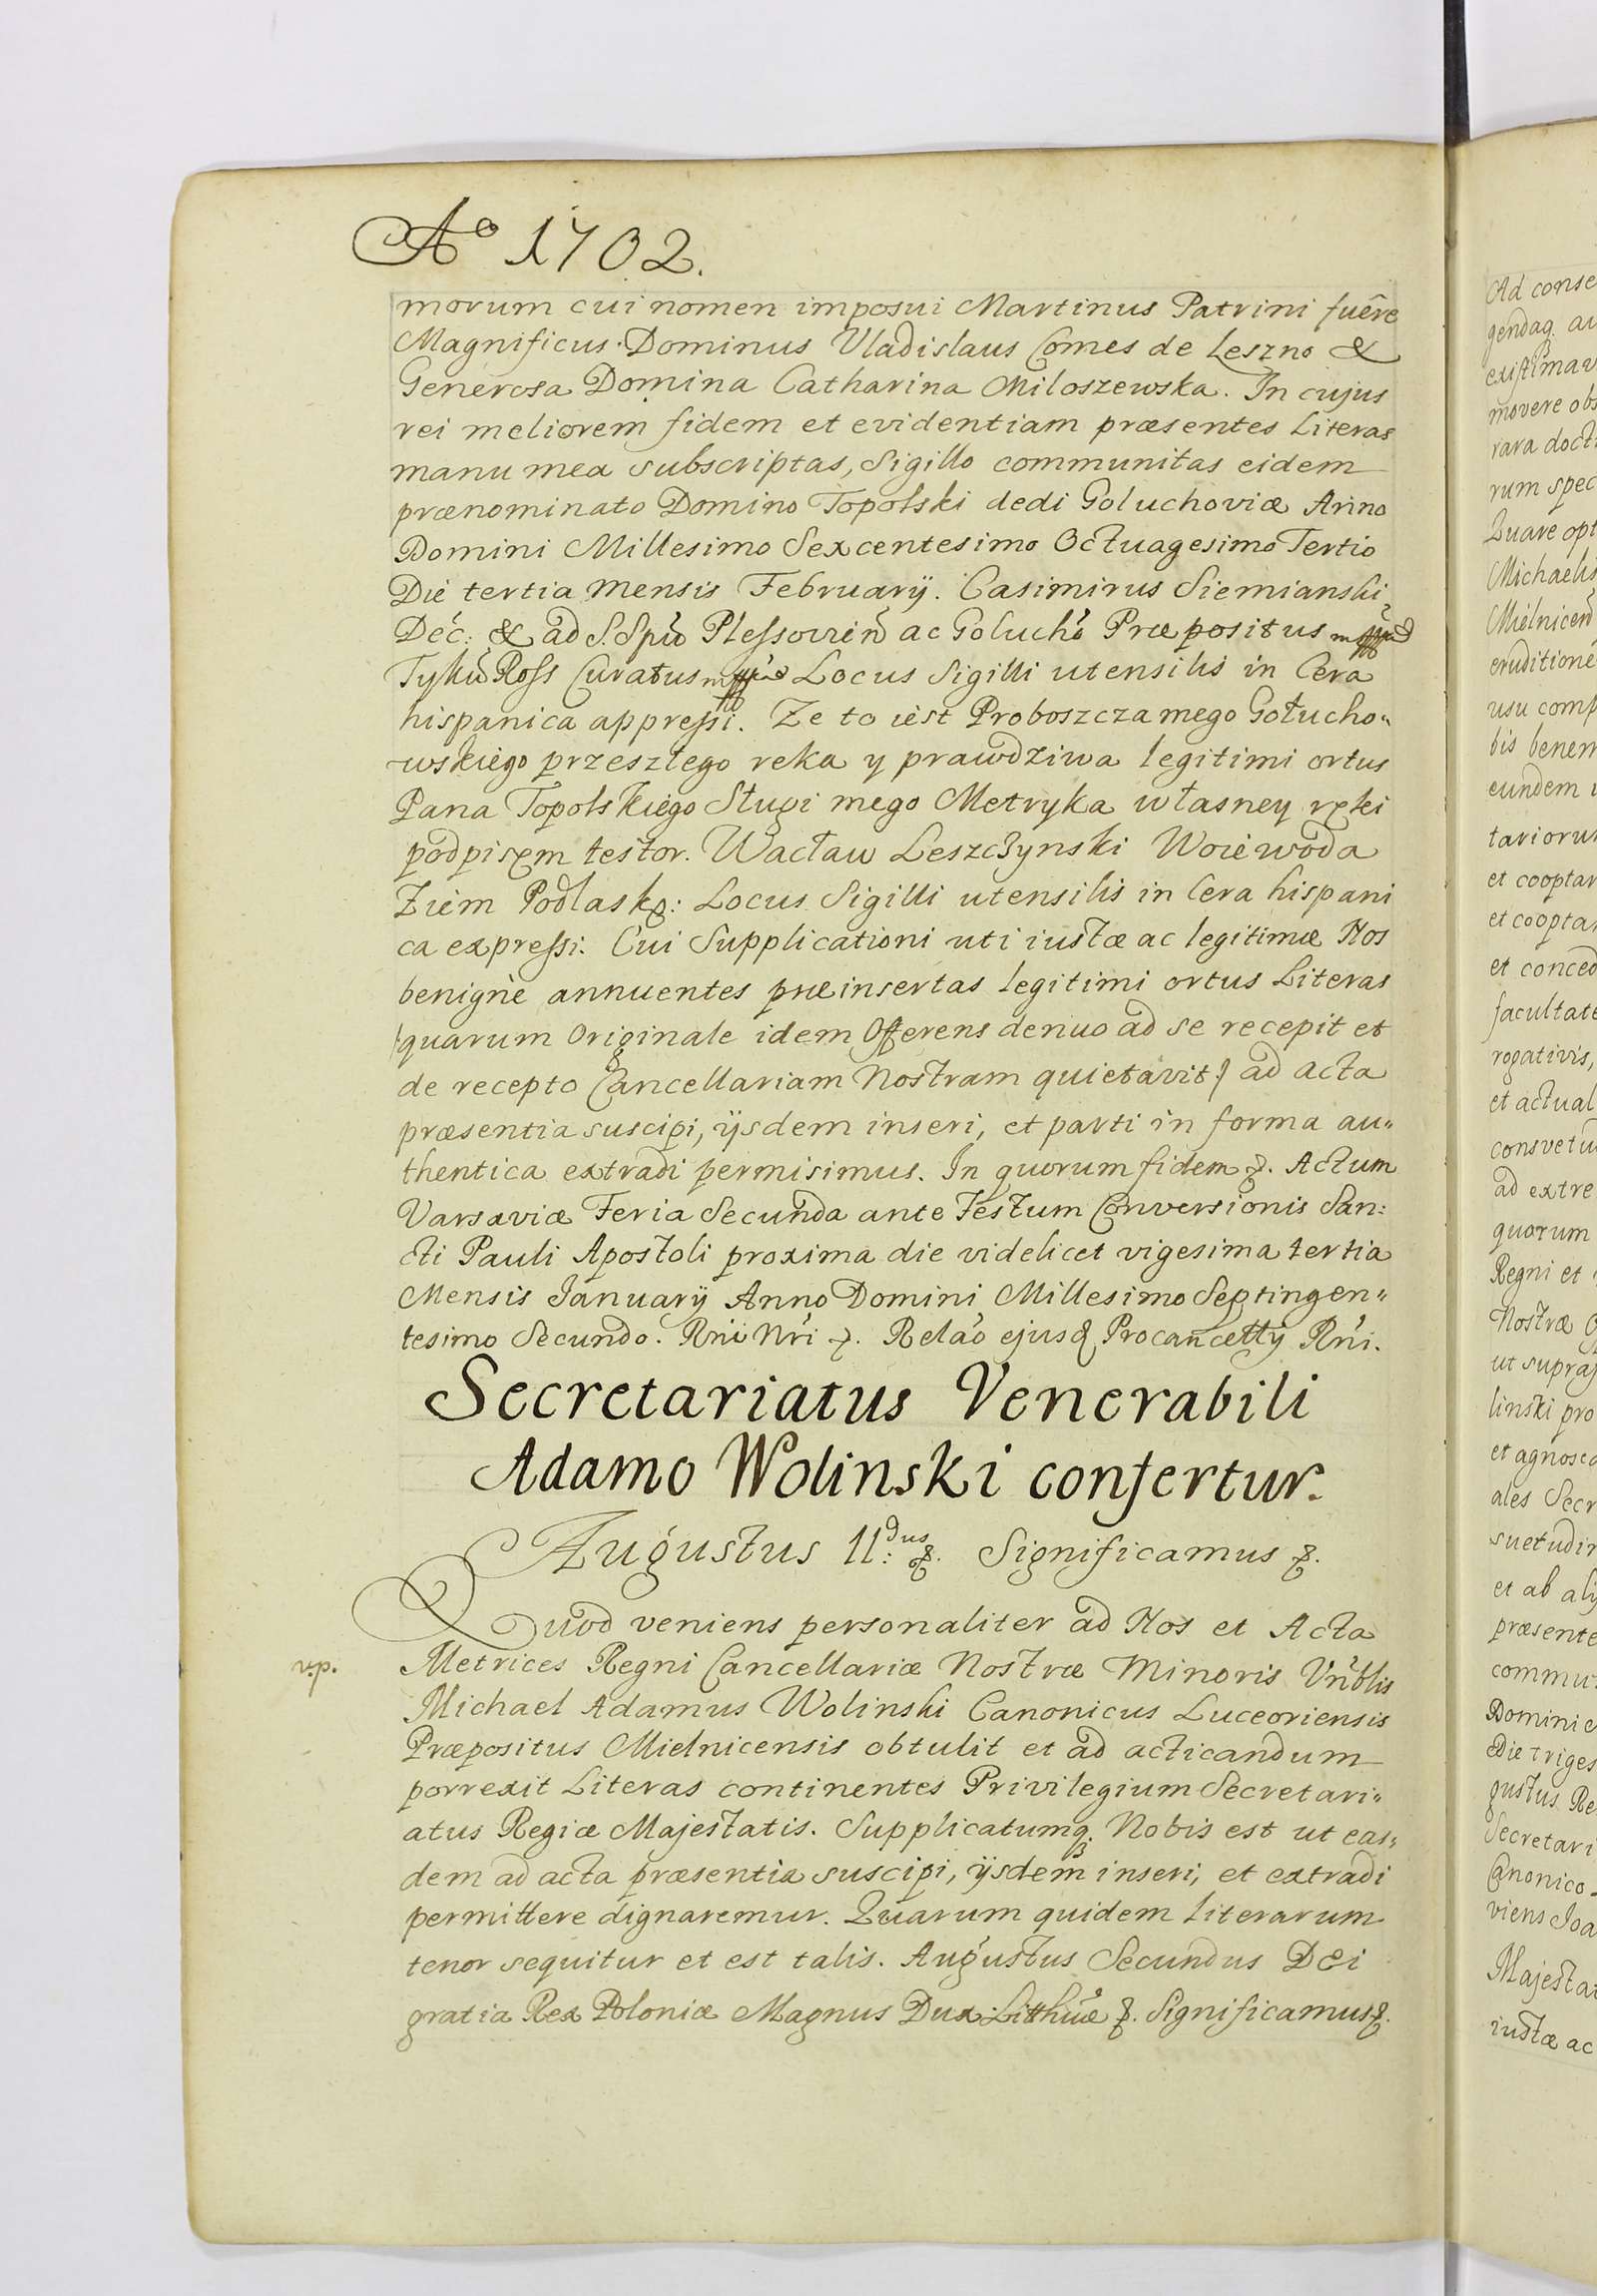 Aº 1702.
morum cui nomen imposui Martinus Patrini fuêre
Magnificus Dominus Vladislaus Comes de Leszno &
Generosa Domina Catharina Miloszewska. In cujus
rei meliorem fidem et evidentiam præsentes Literas
manu mea subscriptas, Sigillo communitas eidem
prænominato Domino Topolski dedi Goluchoviæ Anno
Domini Millesimo Sexcentesimo Octuagesimo Tertio
Die tertia Mensis Februarÿ. Casimirus Siemianski
Dec: & ad S. Spũ Plessovien ac Goluchó Præpositus
Ross Curatus Locus Sigilli utensilis in Cera
hispanica appressi. Ze to iest Proboszcza mego Gołucho„
wskiego przeszłego reka y prawdziwa legitimi ortus
Pana Topolskiego Sługi mego Metryka własney ręki
podpisęm testor. Wacław Leszczynski Woiewoda
Ziem Podlask: Locus Sigilli utensilis in Cera hispani
ca expressi. Cui Supplicationi uti iustæ ac legitimæ Nos
benignè annuentes præinsertas legitimi ortus Literas
quarum Originale idem Offerens denuo ad se recepit et
de recepto Cancellariam Nostram quietavit ad acta
præsentia suscipi, ÿsdem inseri, et parti in forma au„
thentica extradi permisimus. In quorum fidem &. Actum
Varsaviæ Feria Secunda ante Festum Conversionis San:
cti Pauli Apostoli proxima die videlicet vigesima tertia
Mensis Januarÿ Anno Domini Millesimo Septingen„
tesimo Secundo. Rni Nri &. Relão ejusd Procancellÿ Rni.
Secretariatus Venerabili
Adamo Wolinski confertur.
Augustus II:dus &. Significamus &.
Quod veniens personaliter ad Nos et Acta
Metrices Regni Cancellariæ Nostræ Minoris Vnblis
Michael Adamus Wolinski Canonicus Luceoriensis
Præpositus Mielnicensis obtulit et ad acticandum
porrexit Literas continentes Privilegium Secretari„
atus Regiæ Majestatis. Supplicatumq. Nobis est ut eas„
dem ad acta præsentia suscipi, ÿsdem inseri, et extradi
permittere dignaremur. Quarum quidem literarum
tenor sequitur et est talis. Augustus Secundus Dei
gratia Rex Poloniæ Magnus Dux Litthuæ &. Significamus &.
Ad conse
gendaq. au
existimav
movere obs
rara docti
rum spec
Quare opt
Michaelis
Mielnicen
eruditione
usu comp
bis benem
eundem
tarioru
et cooptar
et coopta
et conced
facultate
rogativis,
et actual
consvetu
ad extre
quorum
Regni et
Nostræ
ut supra
linski pro
et agnosc
ales Secr
suetudin
et ab alÿ
præsente
commu
Dominic
Die triges
gustus Re
Secretari
Canonico
viens Joa
Majestat
iustæ ac